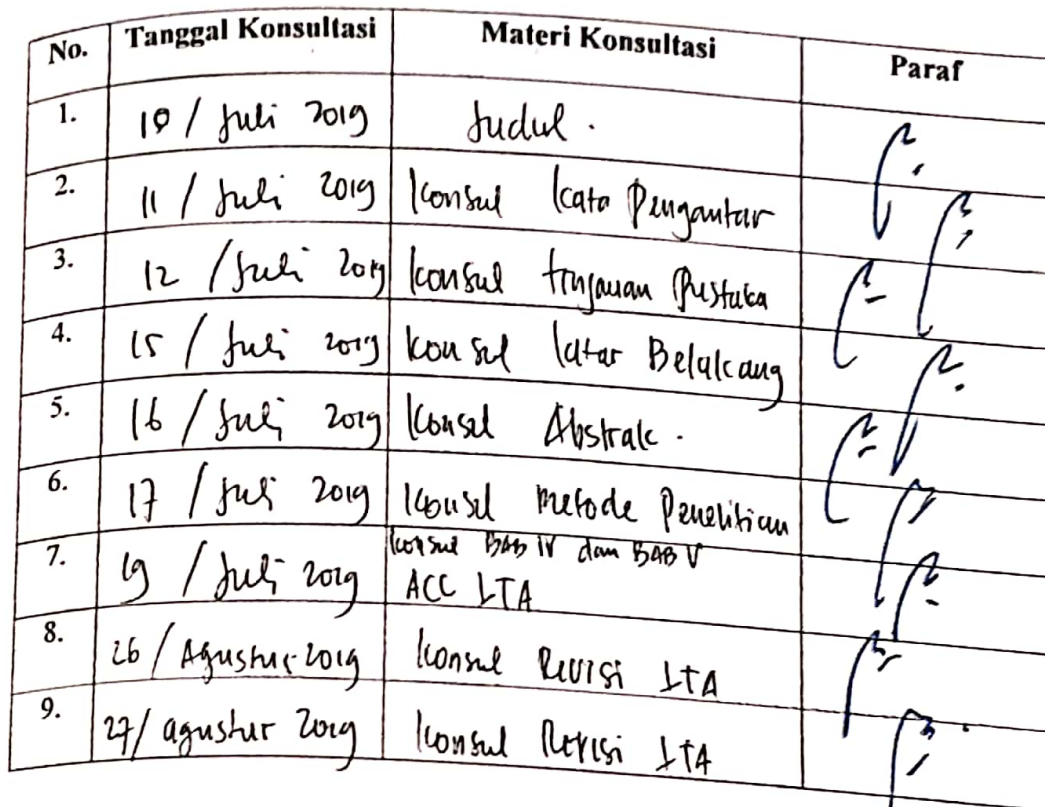 No. Tanggal Konsultasi Materi Konsultasi Paraf
1. 10 / Juli 2019 Judul.
2. 11 / Juli 2019 Konsul Kata Pengantar
3. 12 / Juli 2019 Konsul tinjauan Pustaka
4. 15 / Juli 2019 Konsul latar Belakang
5. 16 / Juli 2019 Konsul Abstrak.
6. 17 / Juli 2019 Konsul metode Penelitian
7. 19 / Juli 2019 Konsul BAB IV dan BAB V
ACC LTA
8. 26 / Agustus 2019 Konsul Revisi LTA
9. 27 / agustus 2019 Konsul Revisi LTA